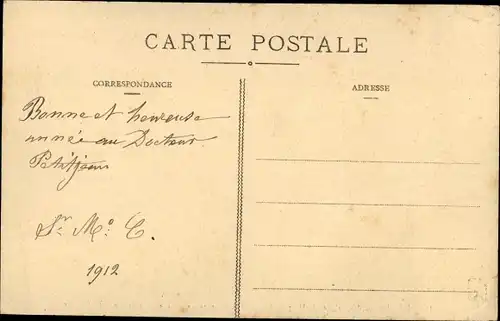 CARTE POSTALE
CORRESPONDANCE
ADRESSE
Bonne et heureuse
année au Docteur
Petitjean
Sr. Mo. C.
1912